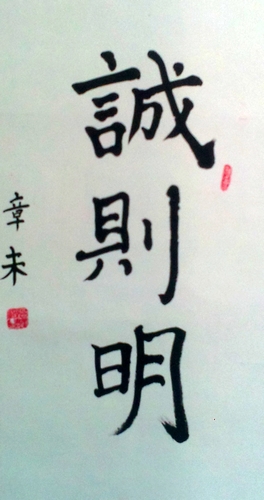 誠則明
章未